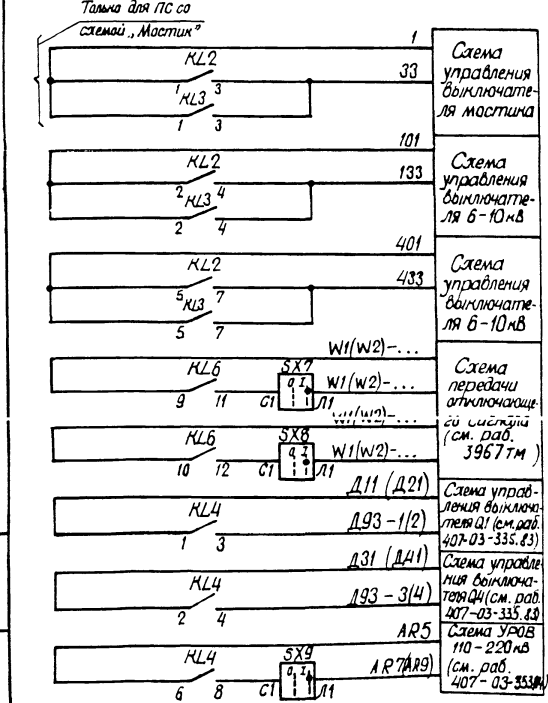 Только для ПС со
схемой „Мостик"
1
KL2
33
1 3
KL3
1 3
Схема
управления
выключате-
ля мостика
101
KL2
133
2 4
KL3
2 4
Схема
управления
выключате-
ля 6-10кВ
401
KL2
433
5 7
KL3
5 7
Схема
управления
выключате-
ля 6-10кВ
W1(W2)-...
KL6
SX7
0 I
W1(W2)-...
9 11
C1
Л1
Схема
передачи
отключающе-
го сигнала
(см. раб.
3967тм)
W1(W2)-...
KL6
SX8
0 I
W1(W2)-...
10 12
C1
Л1
Д11 (Д21)
KL4
Д93-1(2)
1 3
Схема управ-
ления выключа-
теля Q1 (см. раб.
407-03-335.83)
Д31 (Д41)
KL4
Д93-3(4)
2 4
Схема управле-
ния выключа-
теля Q4 (см. раб.
407-03-335.83)
AR5
KL4
SX9
0 I
AR7(AR9)
6 8
C1
Л1
Схема УРОВ
110-220кВ
(см. раб.